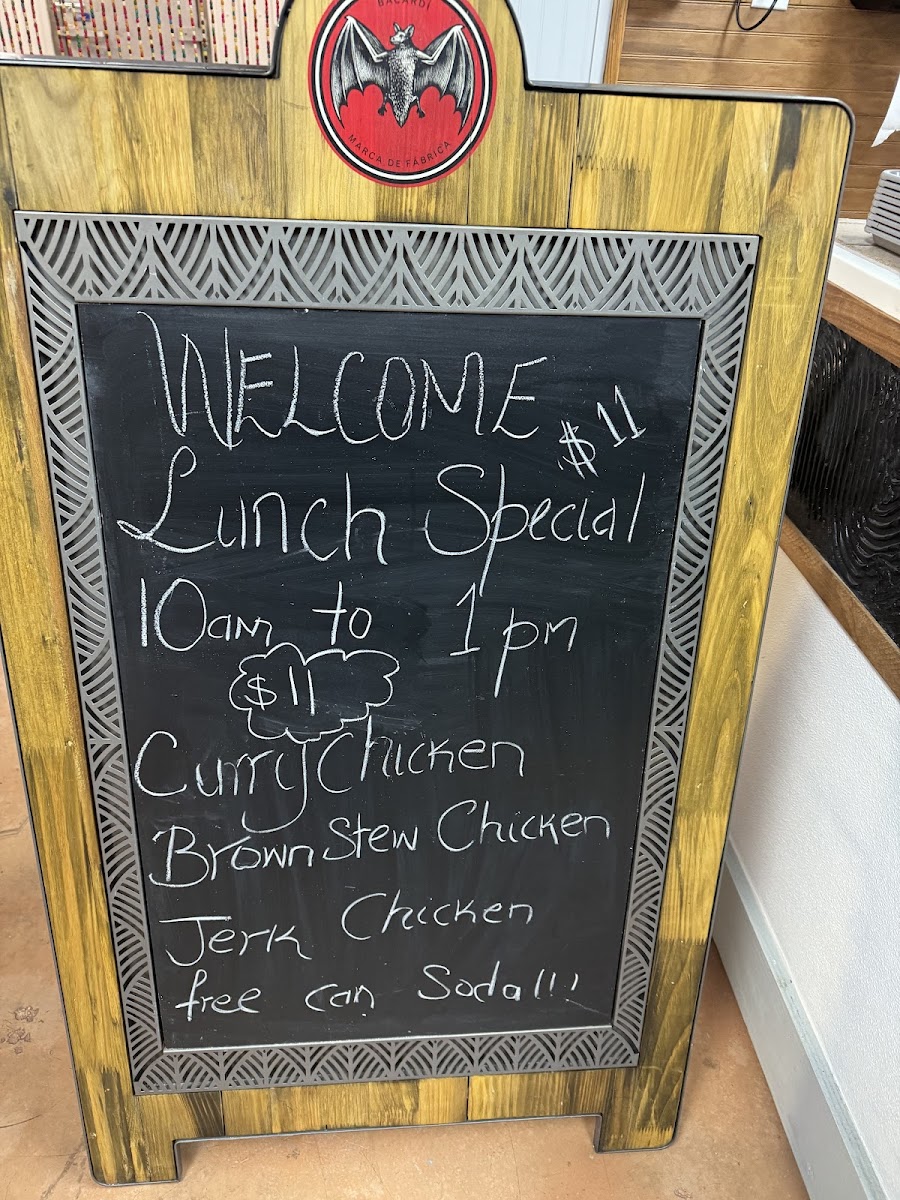 BACARDI
MARCA DE FÁBRICA
WELCOME
$11
Lunch Special
10am to 1pm
$11
Curry Chicken
Brown Stew Chicken
Jerk Chicken
free can Soda!!!